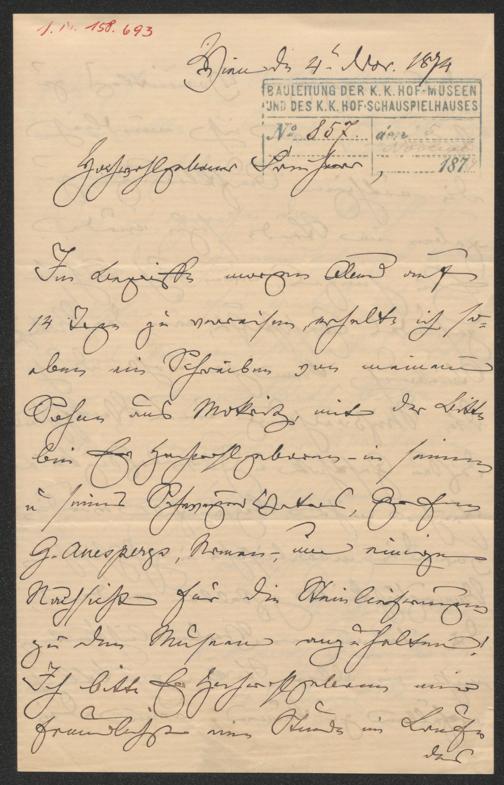 I. N. 158.693
Wien den 4t Nov. 1874
BAULEITUNG DER K.K. HOF-MUSEEN
UND DES K.K. HOF-SCHAUSPIELHAUSES
No 857. den
187
Hochwohlgeborner
Im Begriffe morgen Abend auf
14 Tage zu verreisen, erhalte ich so=
eben ein Schreiben von meinem
Sohne aus Mokritz, mit der Bitte
bei Euer Hochwohlgeboren in seinem
u seines Schwiegervaters,
G. Auerspergs, Namen, um einige
Nachsicht für die Steinlieferungen
zu den Museen anzuhalten!
Ich bitte Euer Hochwohlgeboren mir
freundlichst eine Stunde im Laufe
des